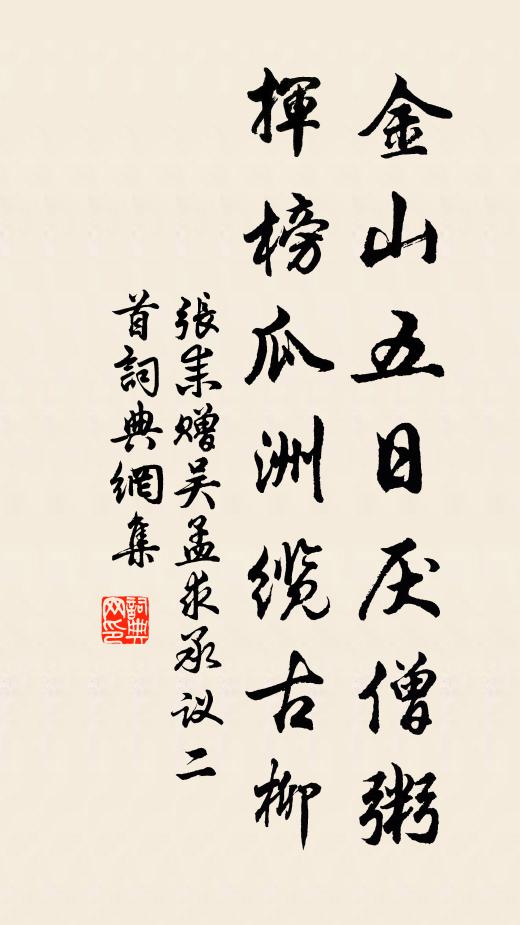 金山五日厌僧粥
揮榜瓜洲缆古柳
張耒赠吴孟求承议二
首詞典網集
詞典
网印